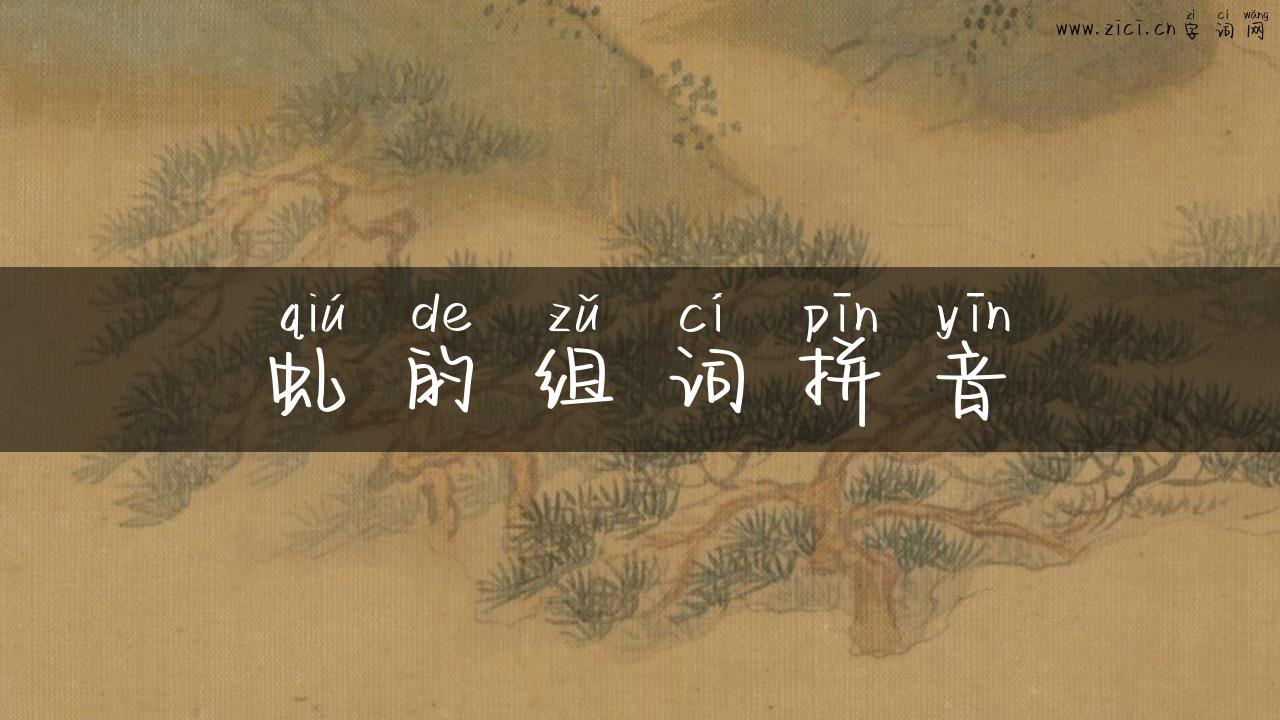 zì cí wǎng
www.zici.cn 字词网
qiú de zǔ cí pīn yīn
虬的组词拼音